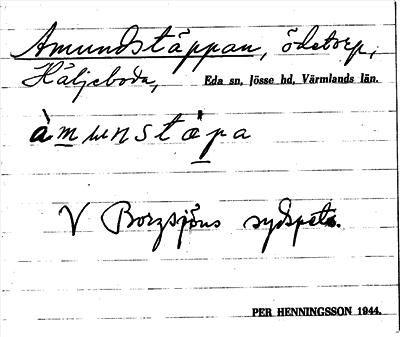 Amundstäppan, ödetorp,
Häljeboda, Eda sn, Jösse hd, Värmlands län.
àmunstäpa
V Borgsjöns sydspets.
PER HENNINGSSON 1944.